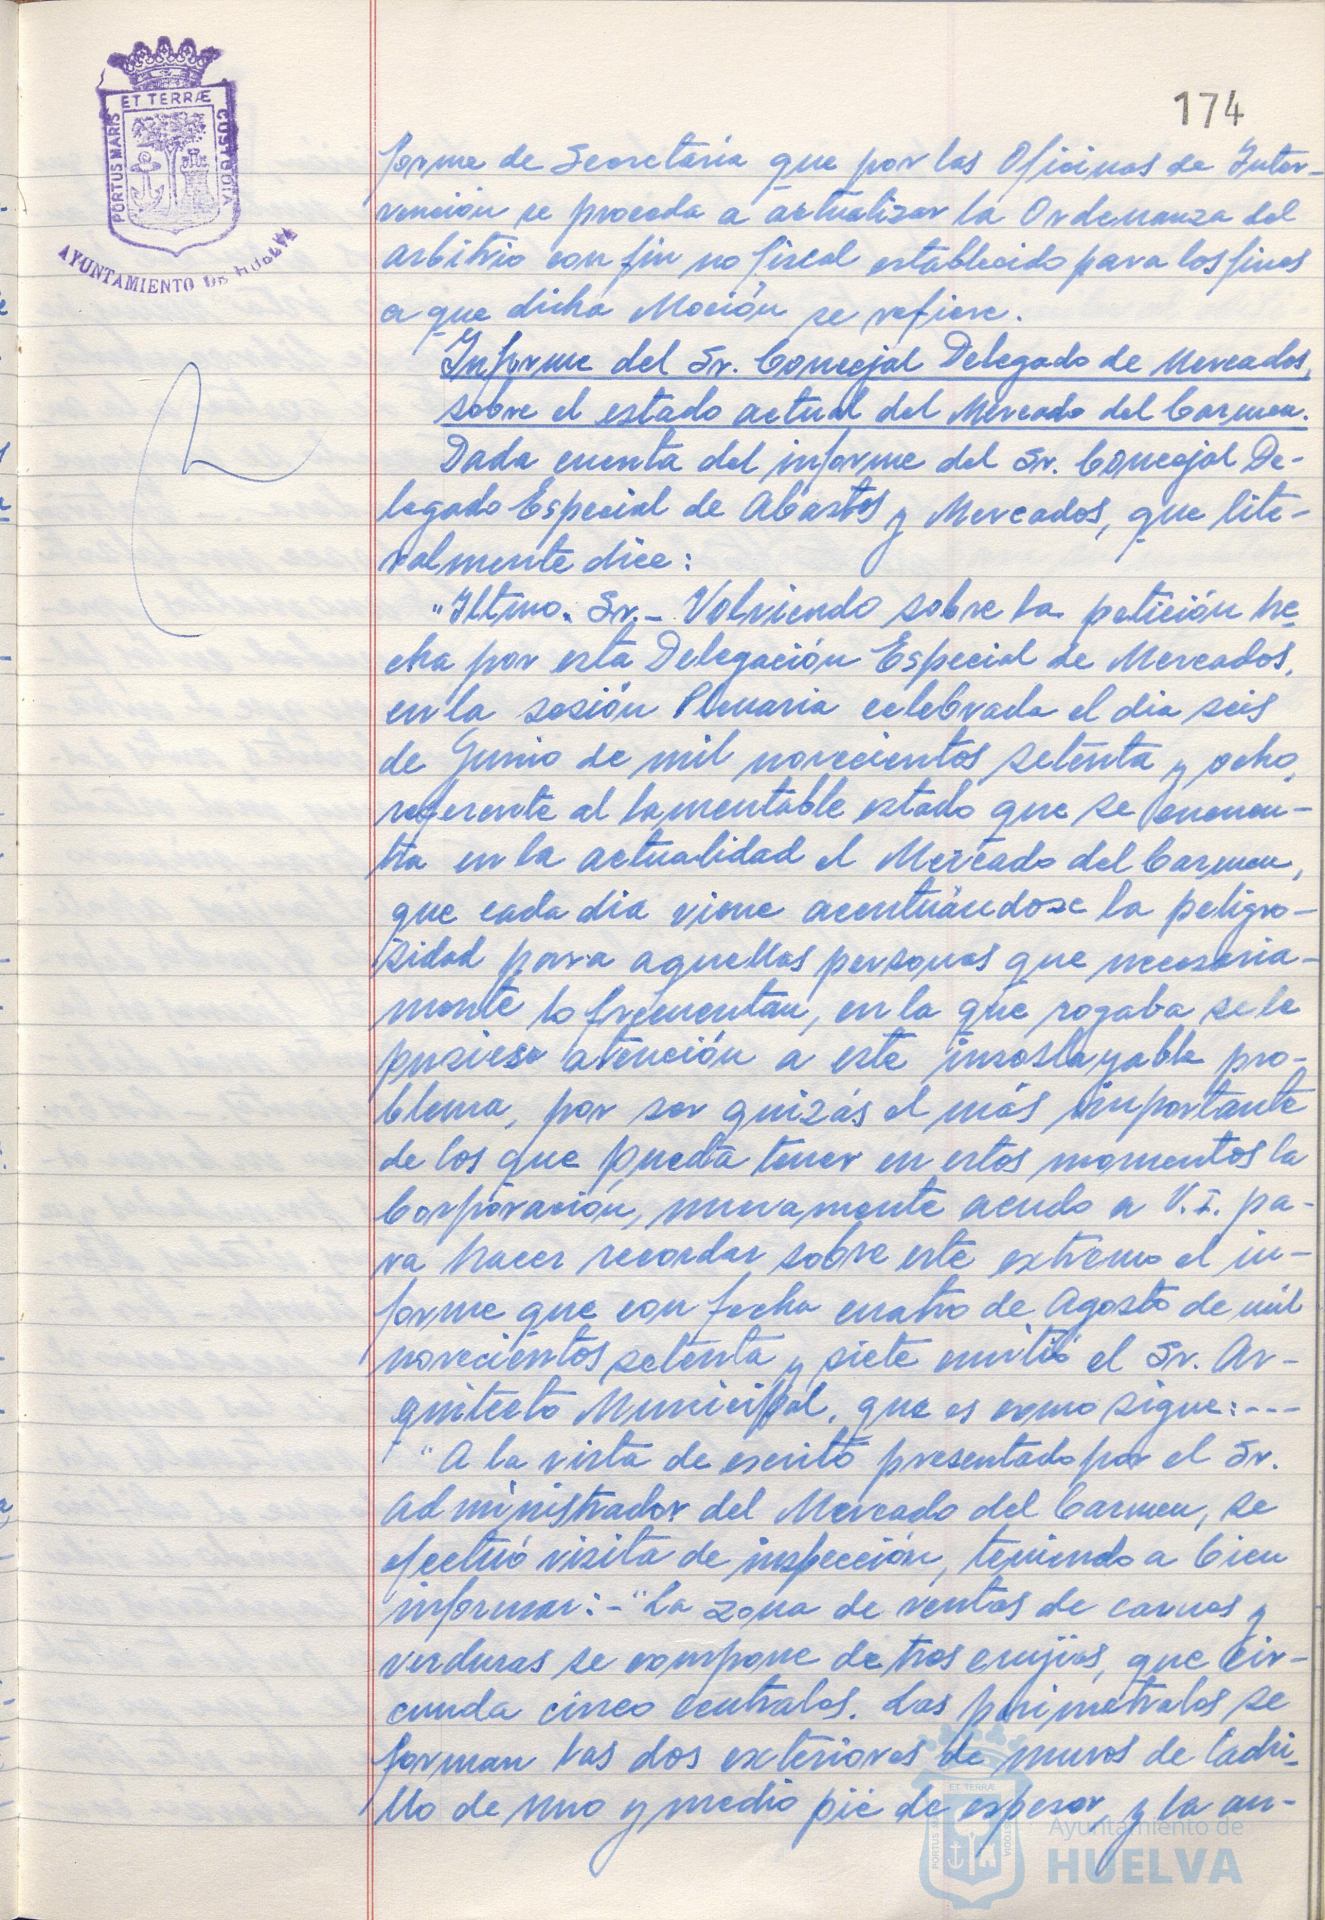 ET TERRÆ
PORTUS MARIS
CUSTODIA
AYUNTAMIENTO DE HUELVA
174
forme de Secretaria que por las Oficinas de Inter-
vención se proceda a actualizar la Ordenanza del
arbitrio con fin no fiscal establecido para los fines
a que dicha Moción se refiere.
Informe del Sr. Concejal Delegado de Mercados,
sobre el estado actual del Mercado del Carmen.
Dada cuenta del informe del Sr. Concejal De-
legado Especial de Abastos y Mercados, que lite-
ralmente dice:
"Iltmo. Sr.- Volviendo sobre la petición he-
cha por esta Delegación Especial de Mercados,
en la sesión Plenaria celebrada el dia seis
de Junio de mil novecientos setenta y ocho,
referente al lamentable estado que se encuen-
tra en la actualidad el Mercado del Carmen,
que cada dia viene acentuándose la peligro-
sidad para aquellas personas que necesaria-
mente lo frecuentan, en la que rogaba se le
pusiese atención a este insoslayable pro-
blema, por ser quizás el más importante
de los que pueda tener en estos momentos la
Corporación, nuevamente acudo a V.I. pa-
ra hacer recordar sobre este extremo el in-
forme que con fecha cuatro de Agosto de mil
novecientos setenta y siete emitió el Sr. Ar-
quitecto Municipal, que es como sigue:---
"A la vista de escrito presentado por el Sr.
Administrador del Mercado del Carmen, se
efectuó visita de inspección, teniendo a bien
informar:-"La zona de ventas de carnes y
verduras se compone de tres crujias, que cir-
cunda cinco centrales. Las perimetrales se
forman las dos exteriores de muros de ladri-
llo de uno y medio pié de espesor, y la an-
ET TERRÆ
PORTUS MARIS
CUSTODIA
Ayuntamiento de
HUELVA